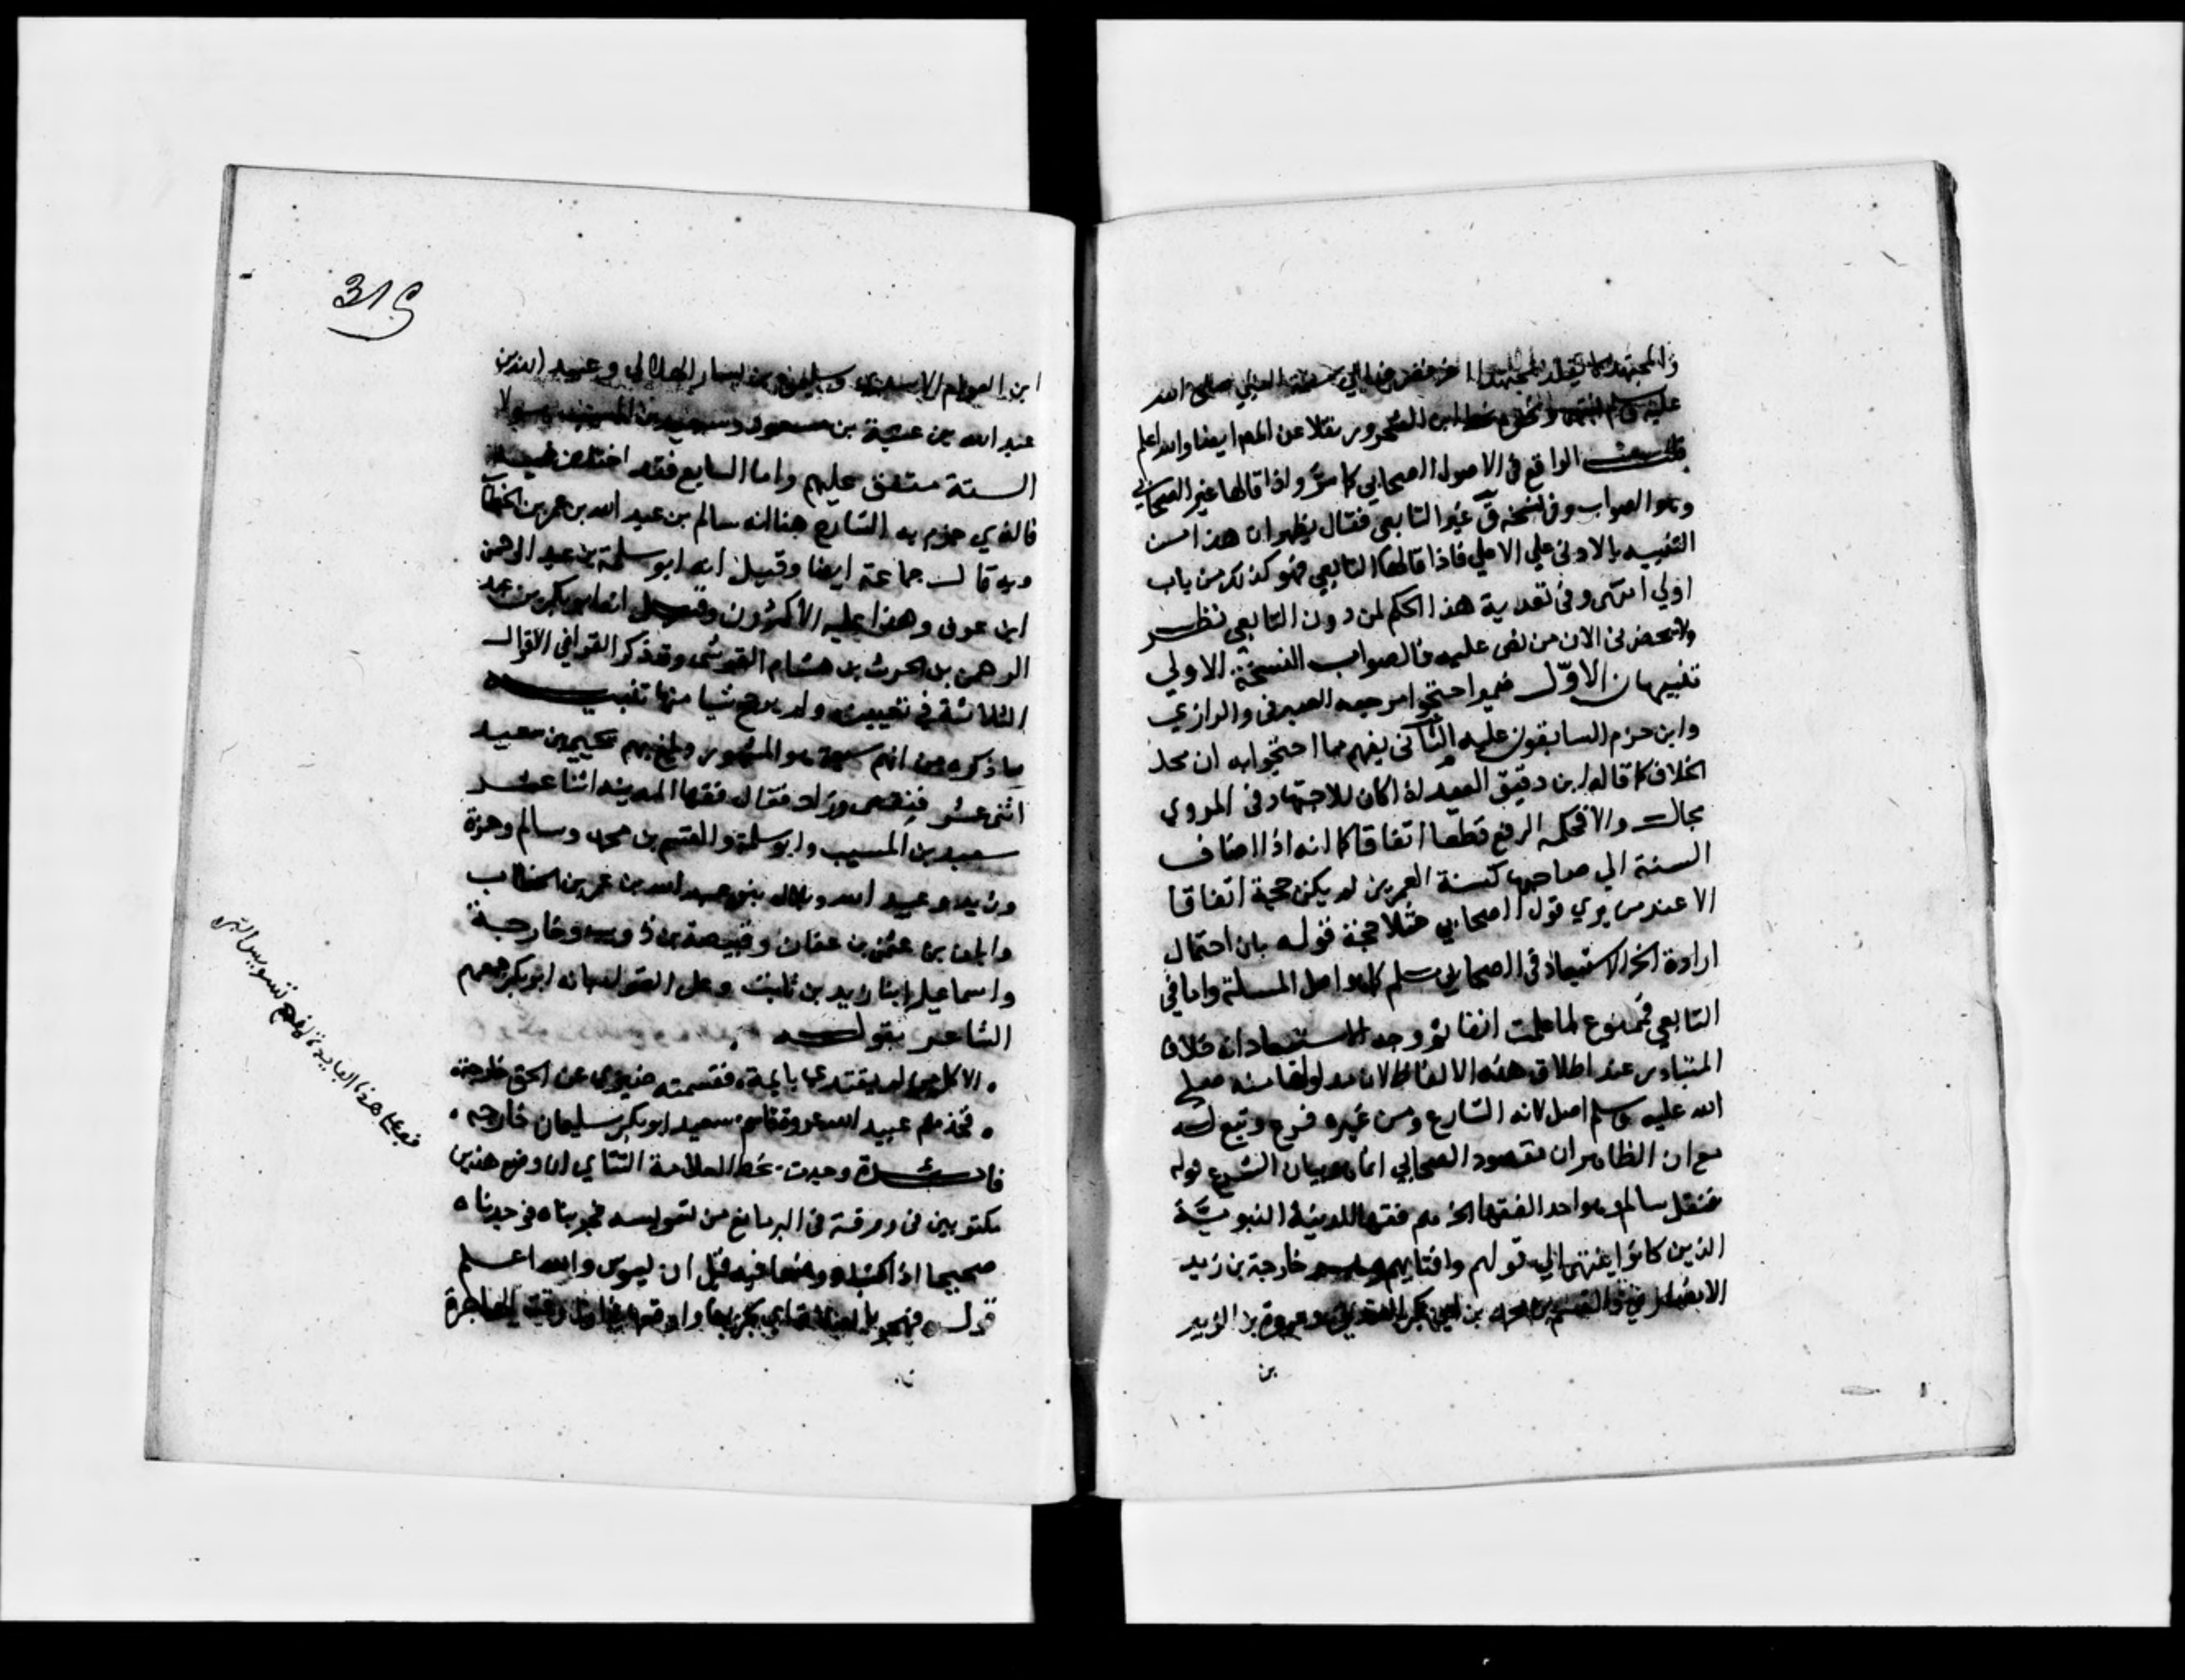 والمجتهد لا يقلد المجتهد النبي صلى الله
عليه وسلم ابن نقلا عن المص ايضا والله اعلم
قلت الواقع في الاصول الصحابي كما مرّ واذا قالها غير الصحابي
وهو الصواب وفي نسخة ق غير التابعي فقال يظهر ان هذا من
التنبيه بالادنى علي الاعلي فاذا قالها التابعي فهو كذلك من باب
اولي انتهى وفي تعدية هذا الحكم لمن دون التابعي نظر
ولا يحضرني الان من نص عليه فالصواب النسخة الاولي
تنبيهان الاوّل فيما احتجوا به الصيرفي والرازي
وابن حزم السابقون عليه الثاني يفهم مما احتجوا به ان محل
الخلاف كما قاله ابن دقيق العيد اذا كان للاجتهاد في المروي
مجال والا فحكمه الرفع قطعا اتفاقا كما انه اذا اضاف
السنة الي صاحبها كسنة العمرين لم يكن حجة اتفاقا
الا عند من يري قول الصحابي مثلا حجة قوله بان احتمال
ارادة الخ الاستبعاد في الصحابي مسلم كما هو اصل المسئلة واما في
التابعي فممنوع لما علمت انفا ووجه الاستبعاد انه خلاف
المتبادر عند اطلاق هذه الالفاظ لان مدلولها منه صلي
الله عليه وسلم اصل لانه الشارع ومن غيره فرع وتبع له
مع ان الظاهر ان مقصود الصحابي انما هو بيان الشرع قوله
فنقل سالم وهو احد الفقها الخ هم فقها المدينة النبويّة
الذين كانوا ينتهى الي قولهم وافتايهم خارجة بن زيد
الانصاري والقسم بن محمد بن ابي بكر الصديق وعروة بن الزبير
بن
319
ابن العوام الاسدي وسليمن بن يسار الهلالي وعبيد الله بن
عبد الله بن عتبة بن مسعود وسعيد بن المسيب وهولا
الستة متفق عليهم واما السابع فقد اختلف فيه
فالذي جزم به الشارح هنا انه سالم بن عبد الله بن عمر بن الخطاب
وبه قال جماعة ايضا وقيل انه ابو سلمة بن عبد الرحمن
ابن عوف وهذا عليه الاكثرون وقيل انه ابو بكر بن عبد
الرحمن بن الحرث بن هشام القرشي وقد ذكر القرافي الاقوال
الثلاثة في تعيينه ولم يرجح شيا منها تنبيه
ما ذكره من انهم سبعة هو المشهور وبلغ بهم يحيى بن سعيد
اثنى عشر فنقص وزاد فقال فقها المدينه اثنا عشر
سعيد بن المسيب وابو سلمة والقسم بن محمد وسالم وحمزة
وزيد وعبيد الله وبلال بنو عبد الله بن عمر بن الخطاب
وابان بن عثمن بن عفان وقبيصة بن ذويب وخارجة
واسماعيل ابنا زيد بن ثابت وعلى القول بانه ابو بكر جمعهم
الشاعر بقوله
الا كل من لا يقتدي بايمة فقسمته ضيزى عن الحق خارجة
فخذهم عبيد الله عروة قاسم سعيد ابو بكر سليمان خارجه
فايدة وجدت بخط العلامة التتاي ان وضع هذين
مكتوبين في ورقة في البر مانع من تسويسه فجربناه فوجدناه
صحيحا اذا كتبا ووضعا فيه قبل ان يسوس والله اعلم
قوله
ف